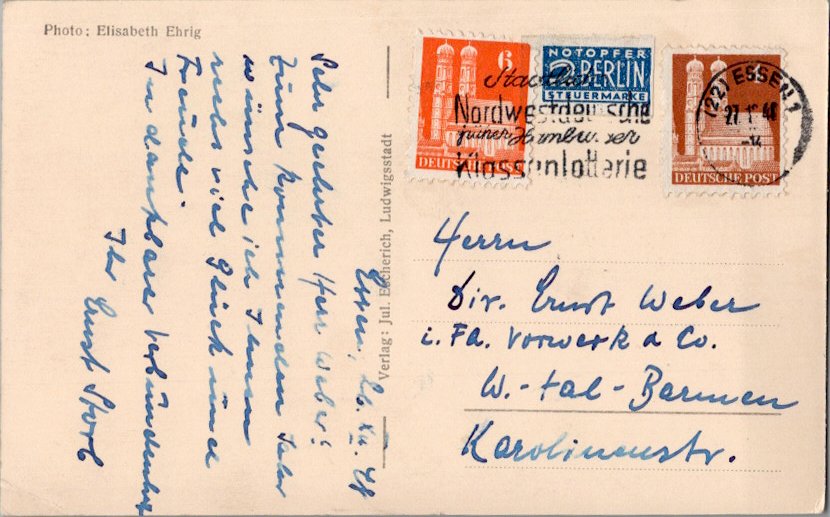 Photo: Elisabeth Ehrig
Essen, 26. XII. 48
Sehr geehrter Herr Weber!
Zum kommenden Jahr
wünsche ich Ihnen
recht viel Glück und
Freude.
In dankbarer Verbundenheit
Ihr Ernst
Verlag: Jul. Escherich, Ludwigsstadt
6
DEUTSCHE POST
NOTOPFER
2 BERLIN
STEUERMARKE
DEUTSCHE POST
Nordwestdeutsche
Klassenlotterie
(22) ESSEN 1
27.1 48
Herrn
Dir. Ernst Weber
i. Fa. Vorwerk & Co.
W.-tal-Barmen
Karolinenstr.